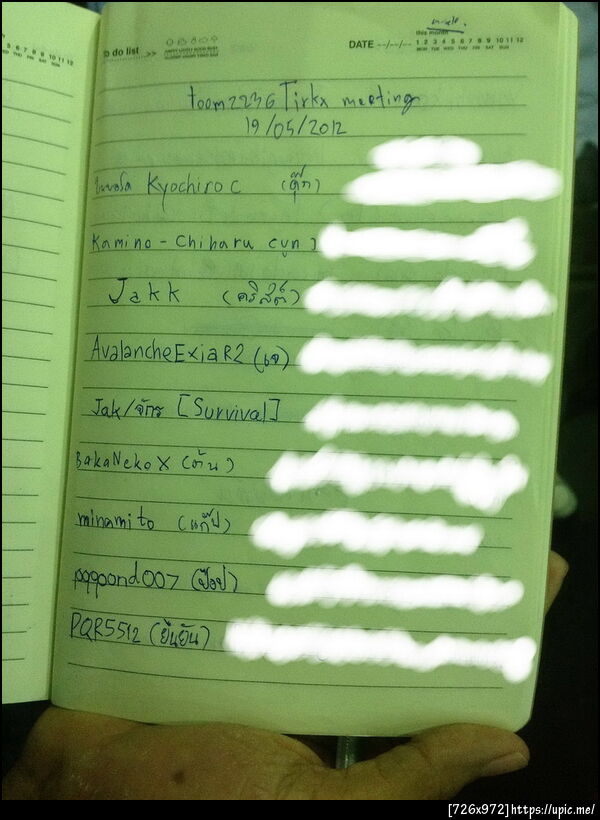 to do list ....>>
DATE --/--/--
this month
1 2 3 4 5 6 7 8 9 10 11 12
MON TUE WED THU FRI SAT SUN
5 6 7 8 9 10 11 12
FRI SAT SUN
toom2236 Tirkx meeting
19/05/2012
Kyochiro C (ตุ๊ก)
Kamino-Chiharu
Jakk (คริสต์)
AvalancheExiaR2 (เจ)
Jak/จักร [Survival]
BakaNekoX (ต้น)
minamito (แก๊ป)
pqpond007 (ป๊อป)
PQR5512 (ยืนยัน)
[726x972]https://upic.me/